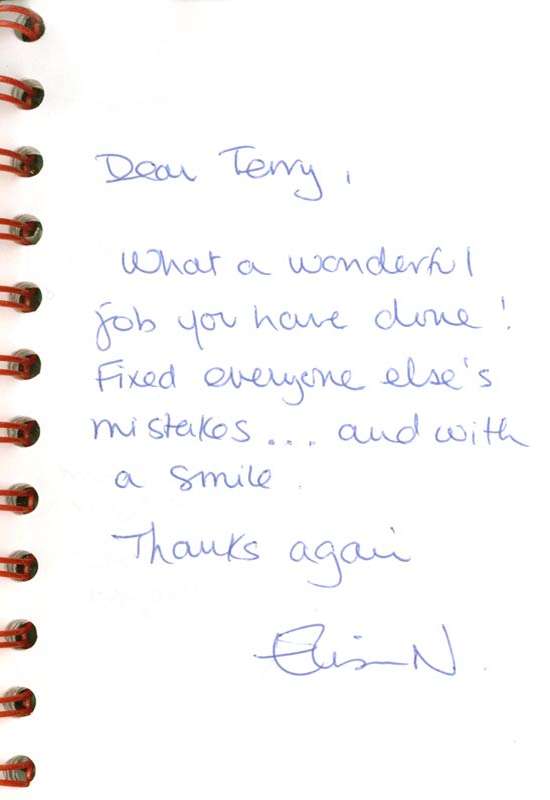 Dear Terry,
What a wonderful
job you have done!
Fixed everyone else's
mistakes... and with
a smile.
Thanks again
N.